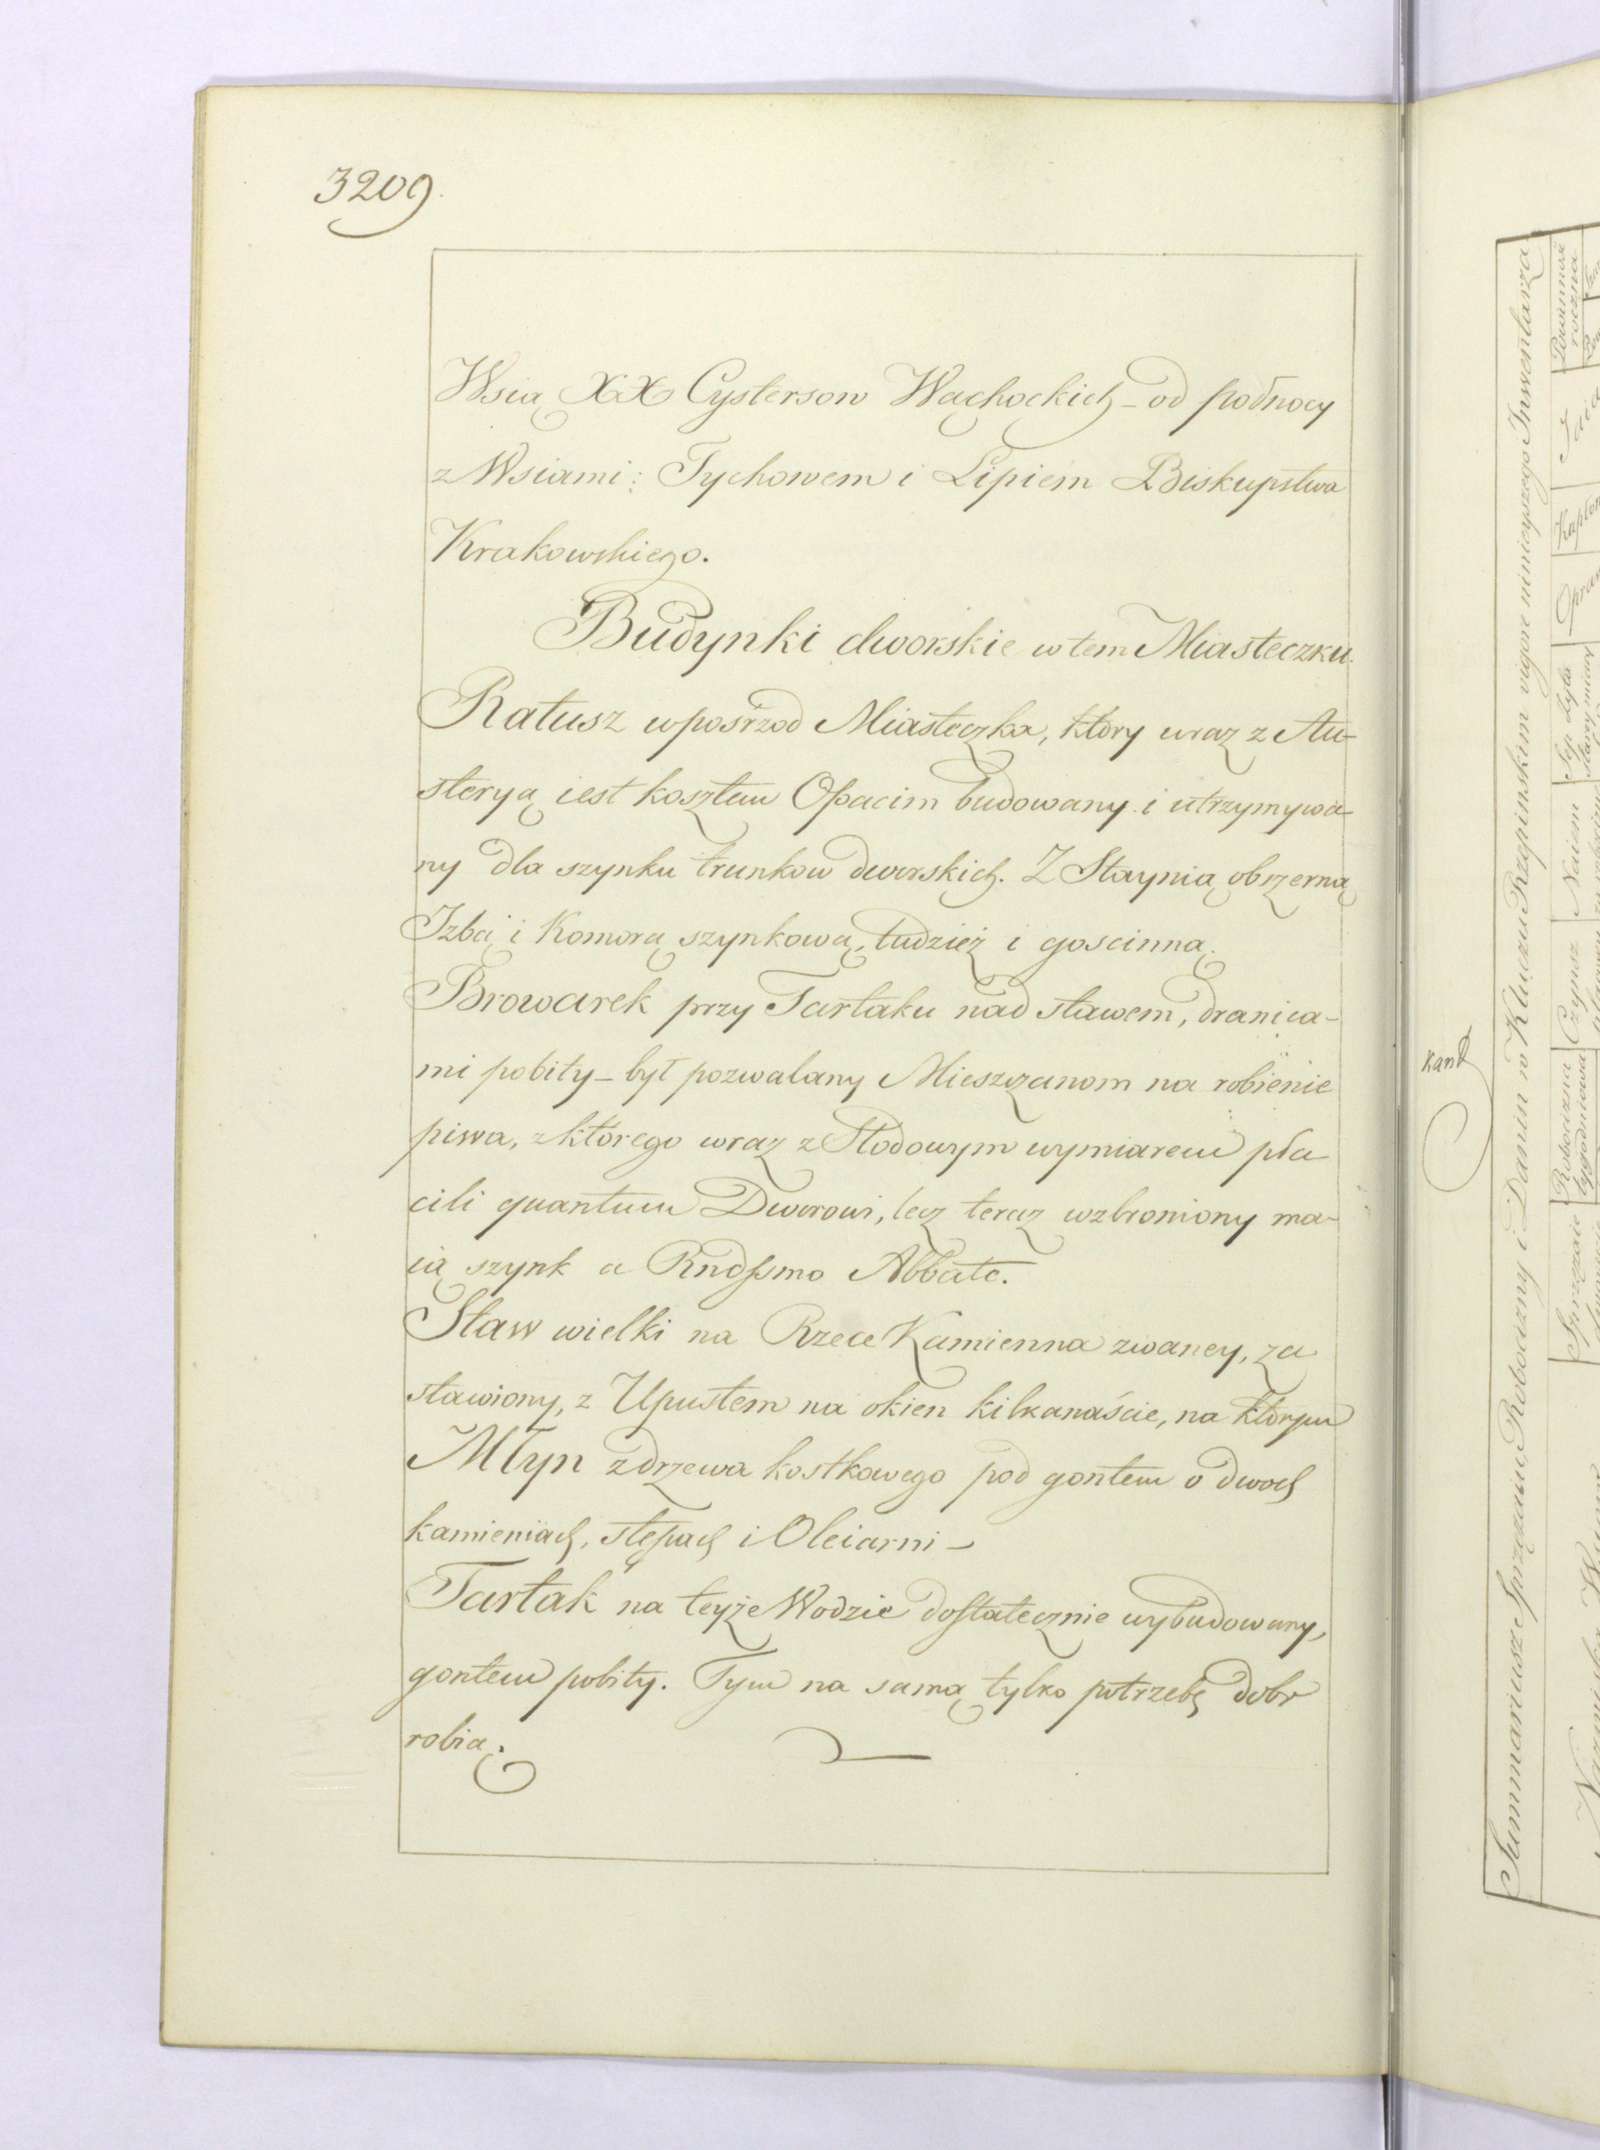 3209.
Wsią XX Cystersow Wąchockich – od połnocy
z Wsiami: Tychowem i Lipiem Biskupstwa
Krakowskiego.
Budynki dworskie w tem Miasteczku.
Ratusz wposrzod Miasteczka, ktory wraz z Au-
steryą iest kosztem Opacim budowany i utrzymywa-
ny dla szynku trunkow dworskich. Z Staynią obszerną
Izbą i Komorą szynkową, tudzież i goscinną.
Browarek przy Tartaku nad stawem, dranica-
mi pobity – był pozwalany Mieszczanom na robienie
piwa, z ktorego wraz z Słodowym wymiarem pła
cili quantum Dworowi, lecz teraz wzbroniony ma-
ią szynk a Rndssmo Abbate.
Staw wielki na Rzece Kamienna zwaney, za
stawiony, z Upustem na okien kilkanaście, na ktorym
Młyn z drzewa kostkowego pod gontem o dwoch
kamieniach, stępach i Oleiarni –
Tartak na teyże Wodzie dostatecznie wybudowany,
gontem pobity. Tym na samą tylko potrzebę dobr
robią.
Kant
Summariusz Sprzężaiu, Robocizny i Danin w Kluczu Rzepinskim vigore ninieyszego Inwentarza
Sprzężaie
Robocizna
tygodniowa
Czynsz
Naiem
Sep Zyta
Starey miary
Powinnosc
roczna